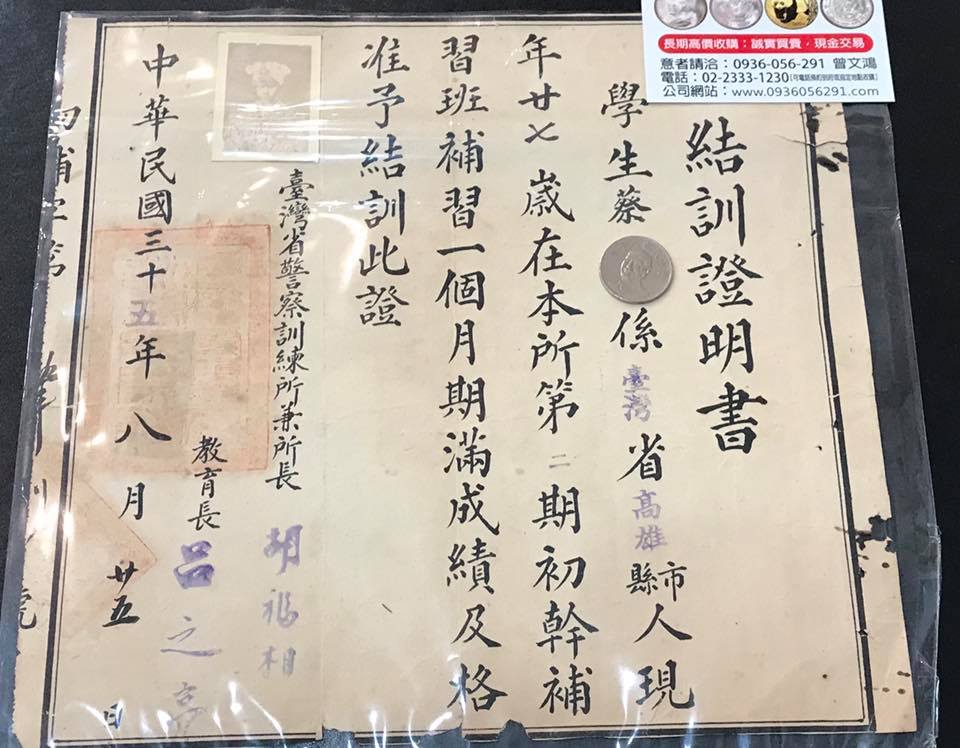 長期高價收購：誠實買賣，現金交易
意者請洽：0936-056-291 曾文鴻
電話：02-2333-1230(可電話預約到府或指定地點收購)
公司網站：www.0936056291.com
結訓證明書
學生蔡 係臺灣省高雄縣市人現
年廿七歲在本所第二期初幹補
習班補習一個月期滿成績及格
准予結訓此證
臺灣省警察訓練所兼所長 胡福相
教育長 呂之亭
中華民國三十五年八月廿五日